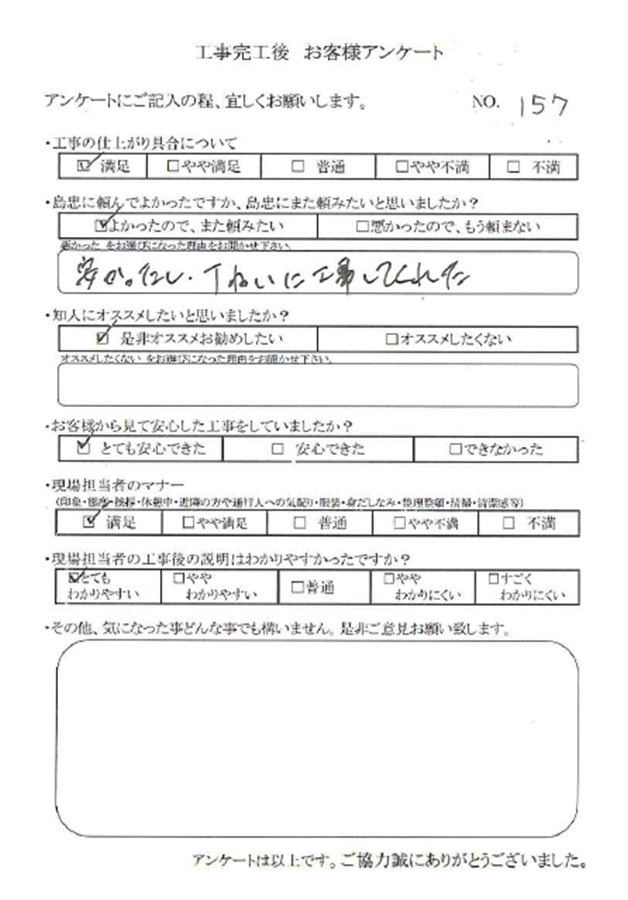 工事完工後 お客様アンケート
アンケートにご記入の程、宜しくお願いします。 NO. 157
・工事の仕上がり具合について
☑ 満足 □やや満足 □ 普通 □やや不満 □ 不満
・島忠に頼んでよかったですか、島忠にまた頼みたいと思いましたか?
☑よかったので、また頼みたい □悪かったので、もう頼まない
悪かった をお選びになった理由をお聞かせ下さい。
安かったし・丁ねいに工事してくれた
・知人にオススメしたいと思いましたか?
☑ 是非オススメお勧めしたい □オススメしたくない
オススメしたくない をお選びになった理由をお聞かせ下さい。
・お客様から見て安心した工事をしていましたか?
☑ とても安心できた □ 安心できた □できなかった
・現場担当者のマナー
(印象・態度・挨拶・休憩中・近隣の方や通行人への気配り・服装・身だしなみ・整理整頓・清掃・清潔感等)
☑ 満足 □やや満足 □ 普通 □やや不満 □ 不満
・現場担当者の工事後の説明はわかりやすかったですか?
☑とても わかりやすい □やや わかりやすい □普通 □やや わかりにくい □すごく わかりにくい
・その他、気になった事どんな事でも構いません。是非ご意見お願い致します。
アンケートは以上です。ご協力誠にありがとうございました。